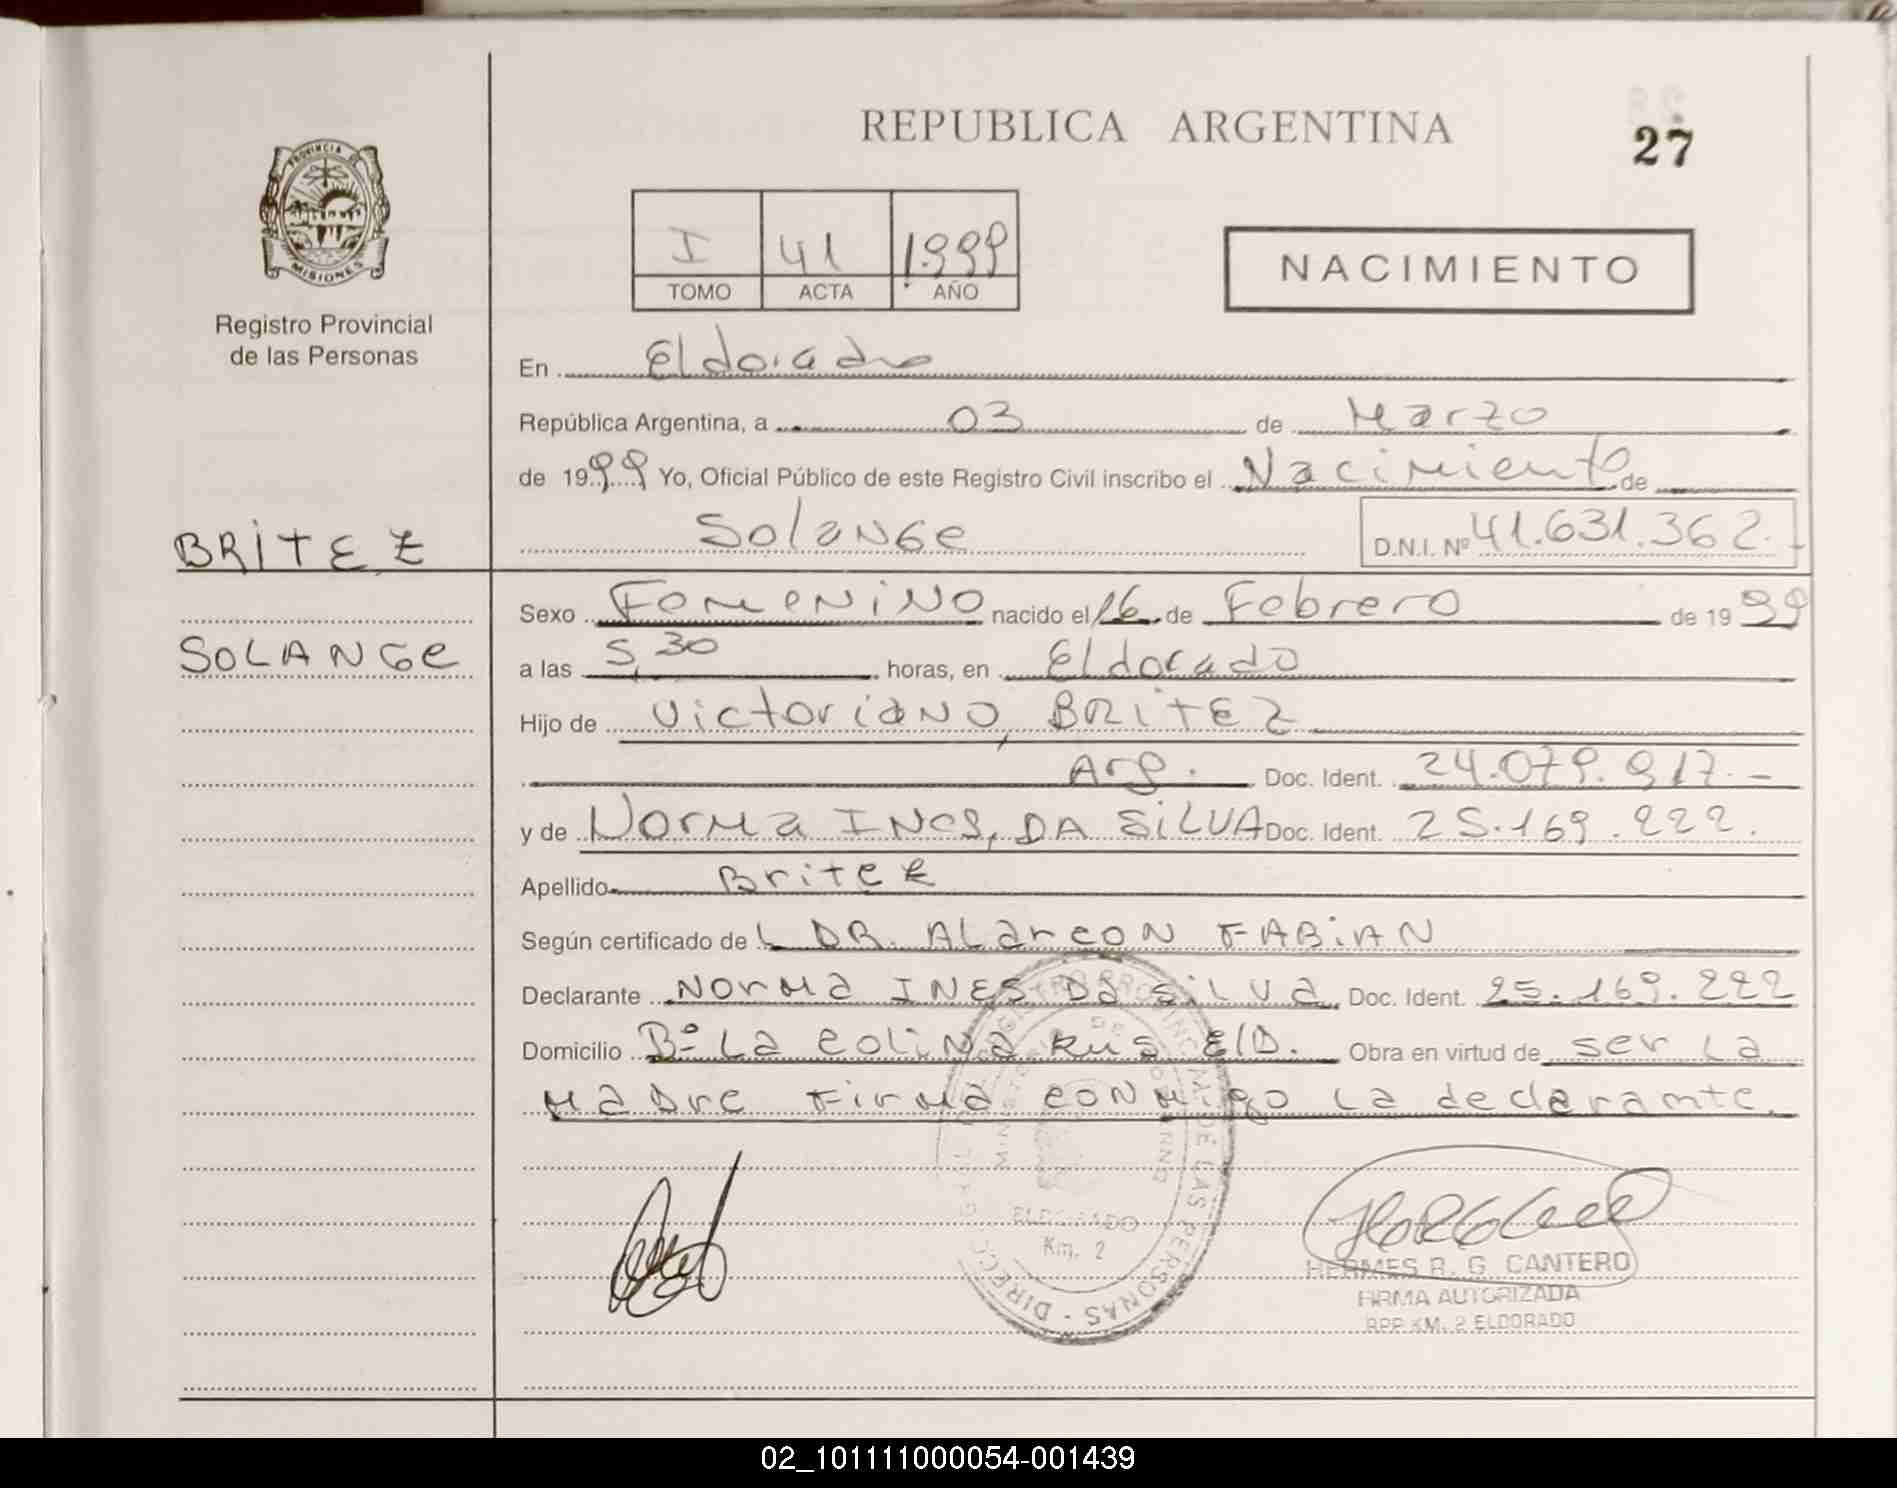 REPUBLICA ARGENTINA
27
PROVINCIA DE
MISIONES
Registro Provincial
de las Personas
I 41 1999
TOMO ACTA AÑO
NACIMIENTO
En Eldorado
República Argentina, a 03 de Marzo
de 1999 Yo, Oficial Público de este Registro Civil inscribo el Nacimiento de
BRITEZ
Solange D.N.I. Nº 41.631.362.-
Sexo Femenino nacido el 16 de Febrero de 1999
SOLANGE
a las 5,30 horas, en Eldorado
Hijo de Victoriano, BRITEZ
Arg. Doc. Ident. 24.079.917.-
y de Norma INES, DA SILVA Doc. Ident. 25.169.222.
Apellido Britez
Según certificado de L DR. Alarcon FABIAN
Declarante Norma INES Da Silva Doc. Ident. 25.169.222
Domicilio Bº La Colina Eld. Obra en virtud de ser la
madre Firma conmigo la declarante.
ELDORADO
Km. 2
HERMES R. G. CANTERO
FIRMA AUTORIZADA
RPP KM. 2 ELDORADO
02_101111000054-001439